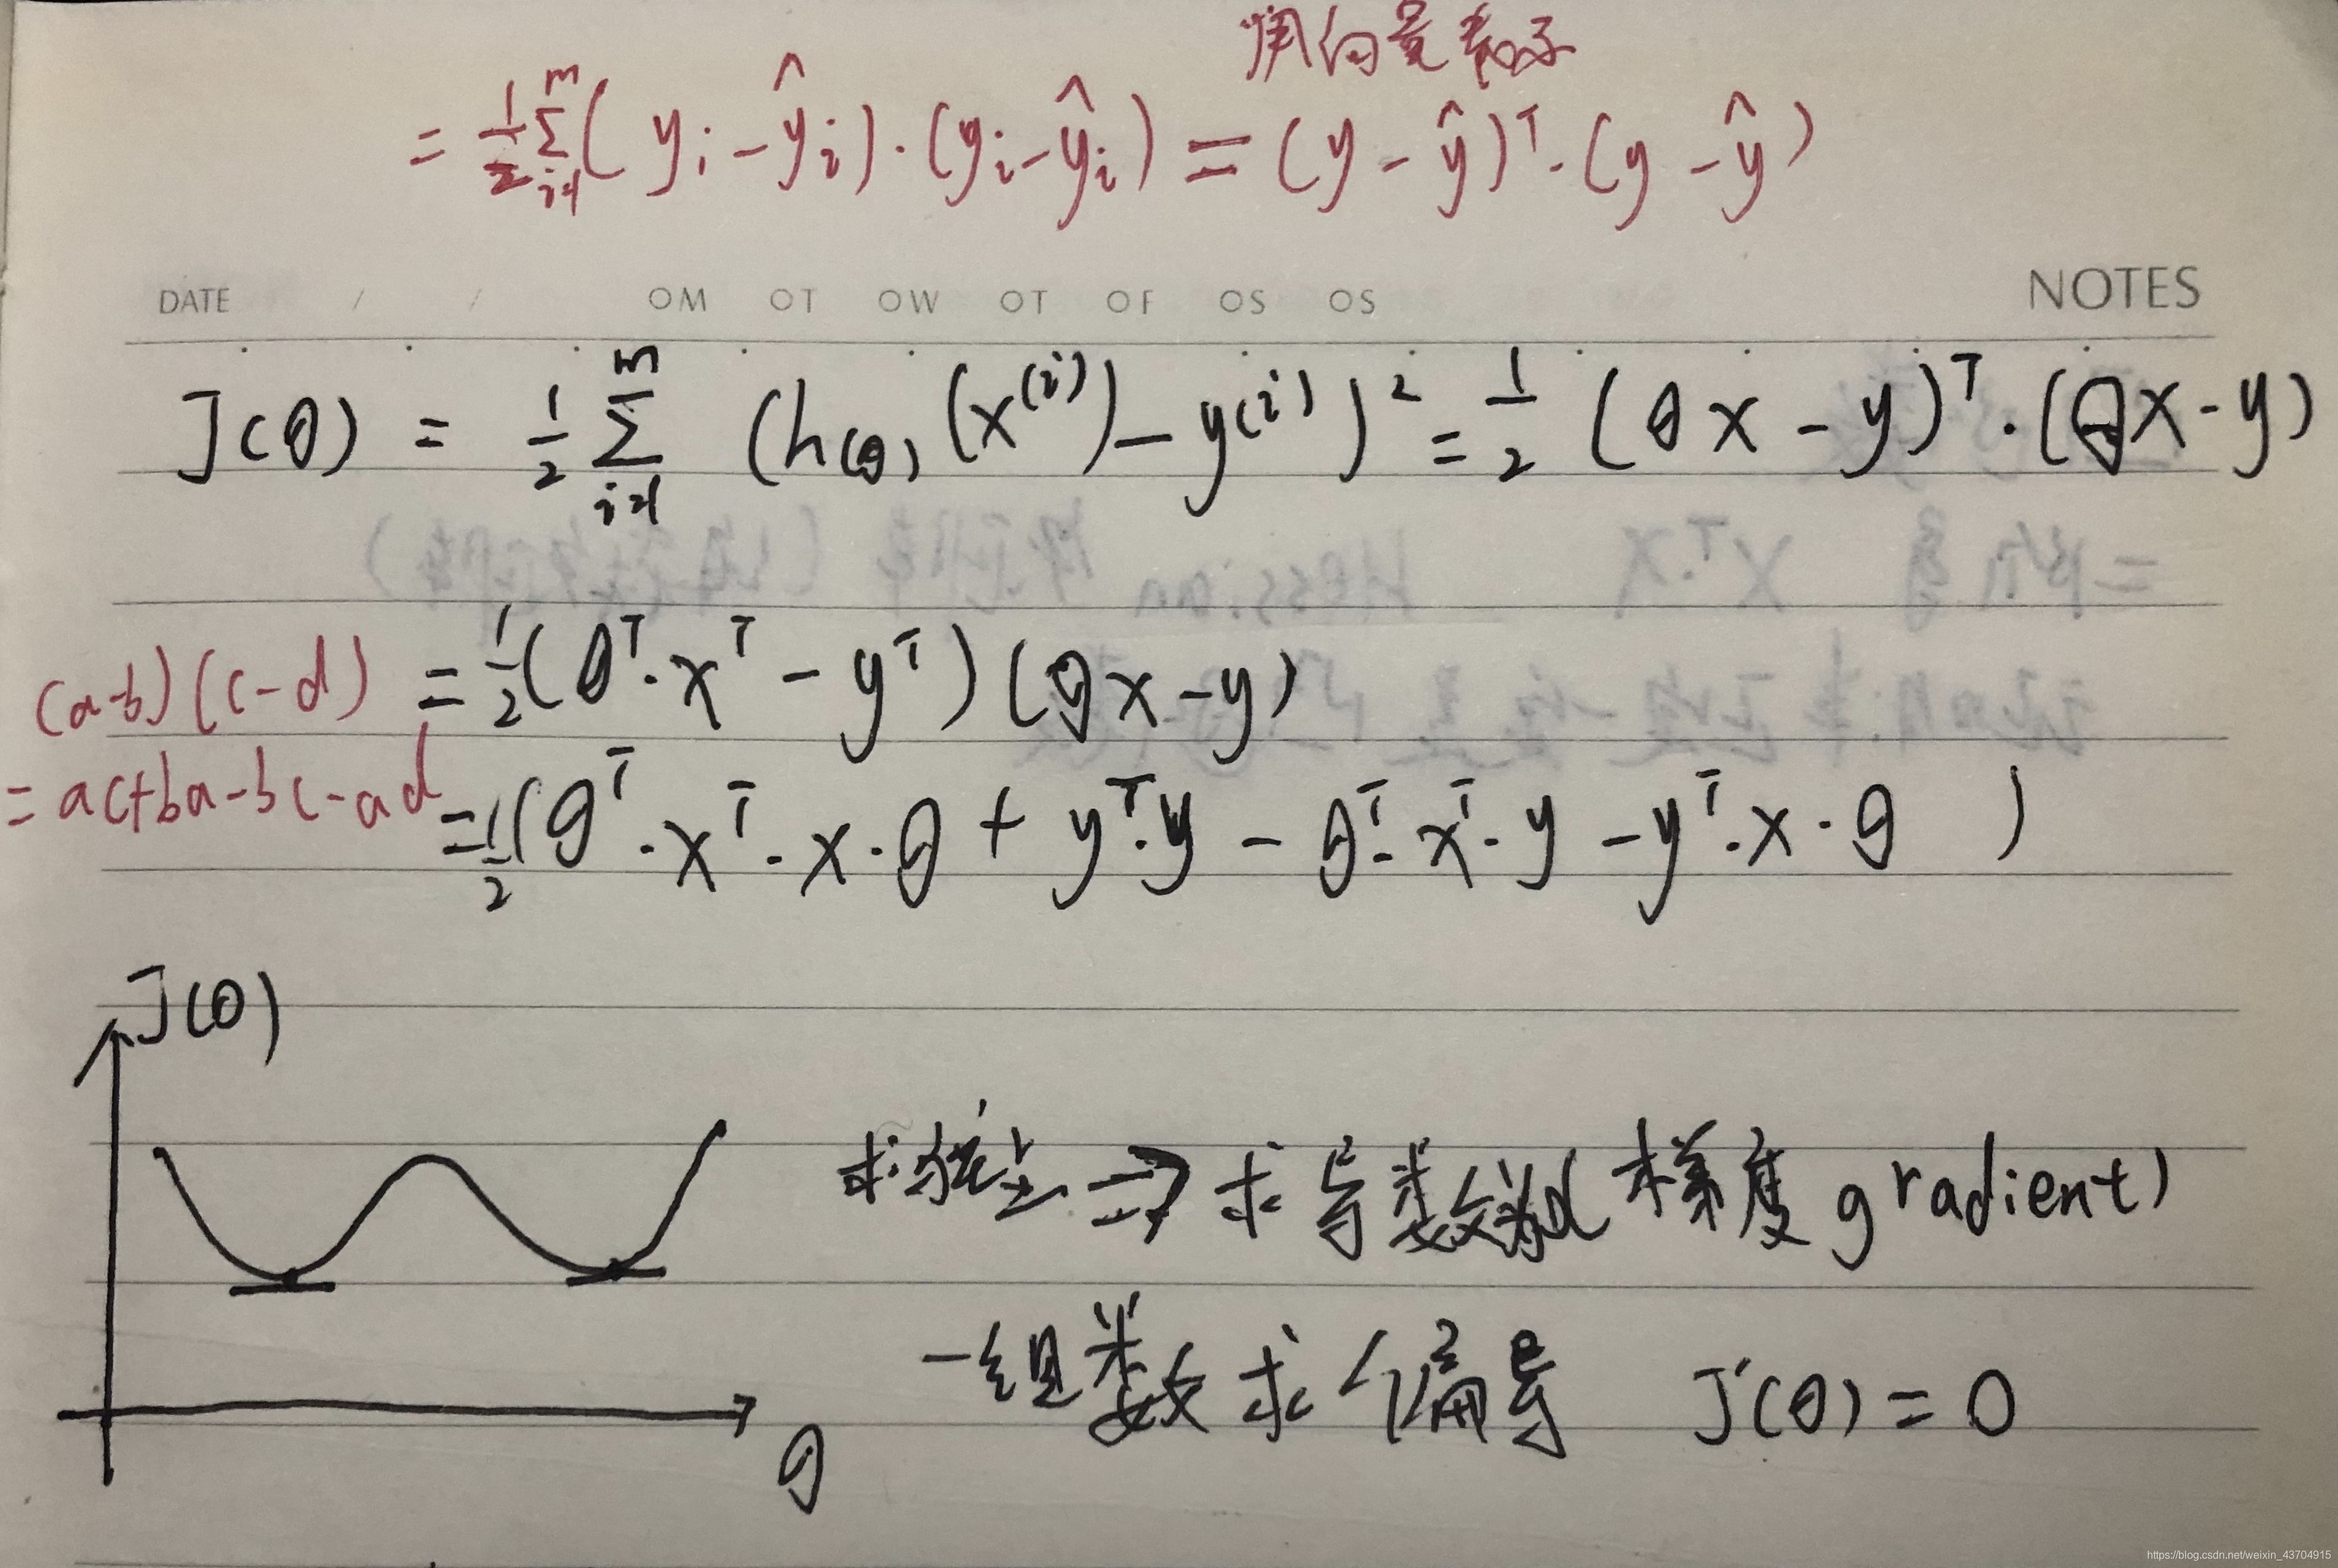 用向量表示
= 1/2 Σ_{i=1}^{m} ( y_i - ŷ_i ) · ( y_i - ŷ_i ) = ( y - ŷ )^T · ( y - ŷ )
DATE / / OM OT OW OT OF OS OS NOTES
J(θ) = 1/2 Σ_{i=1}^{m} (h(θ) (x^(i)) - y^(i) )^2 = 1/2 (θx - y)^T · (θx - y)
(a-b)(c-d) = 1/2 (θ^T · x^T - y^T) (θx - y)
= ac+ba-bc-ad = 1/2 (θ^T · x^T · x · θ + y^T · y - θ^T · x^T · y - y^T · x · θ )
J(θ)
⇒ 求导数 (梯度 gradient)
一组数求偏导 J'(θ) = 0
θ
https://blog.csdn.net/weixin_43704915